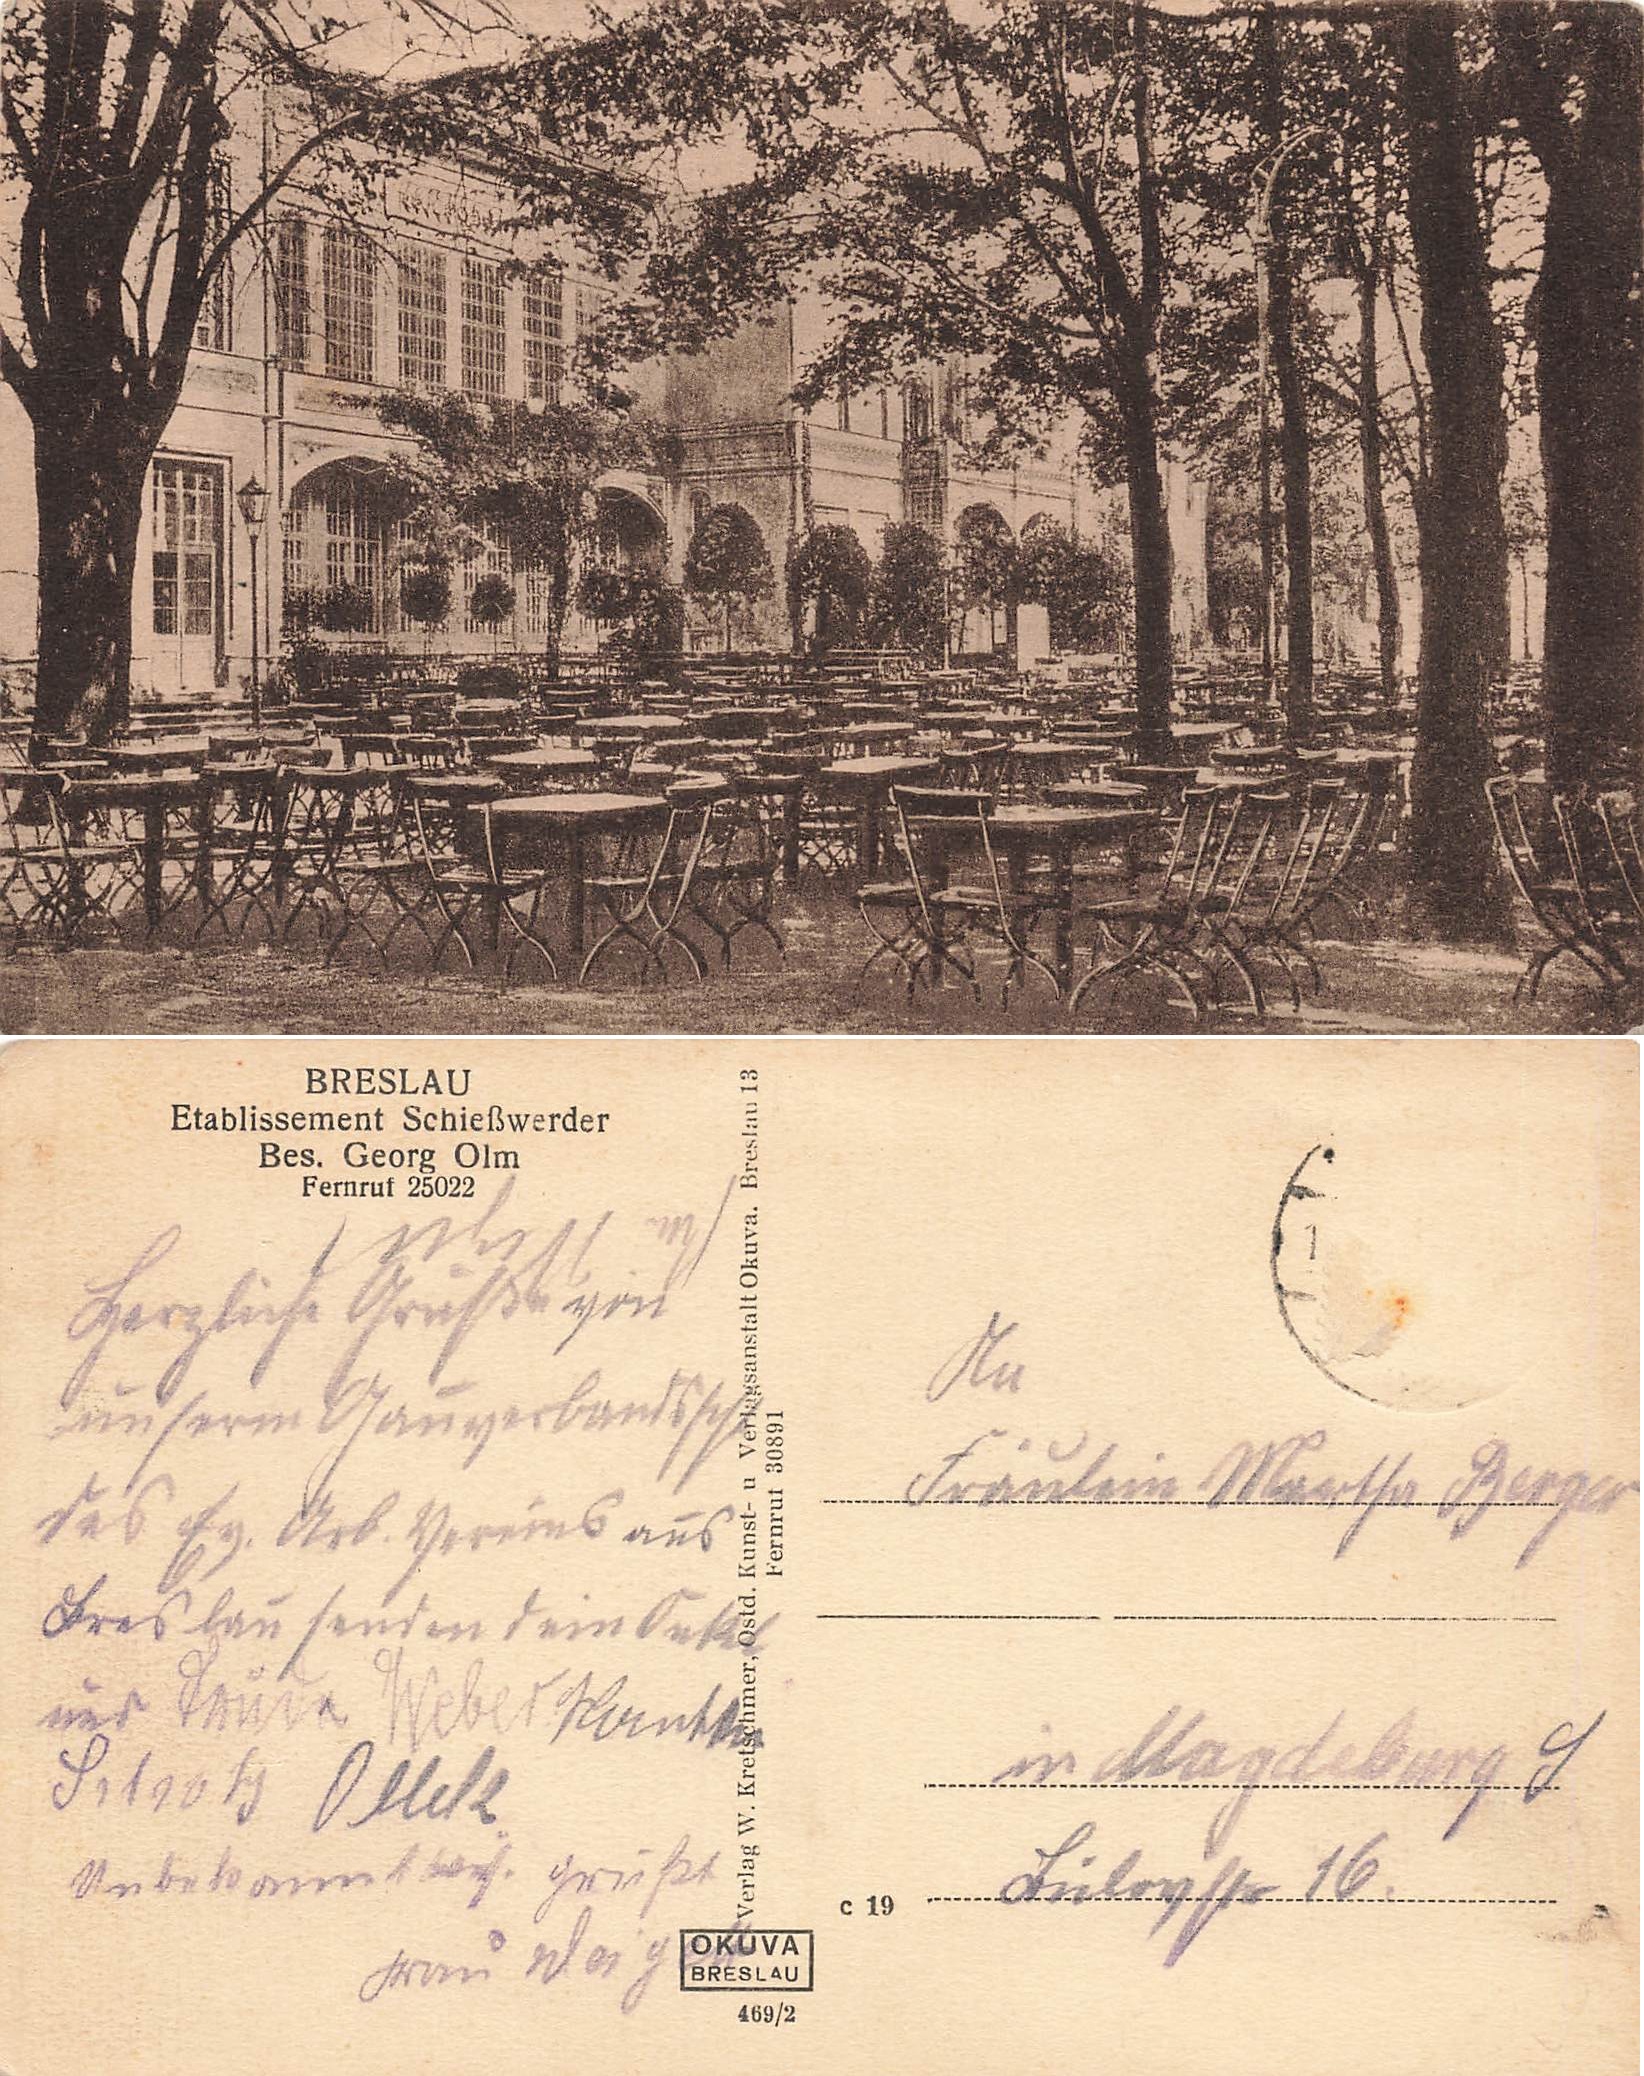 BRESLAU
Etablissement Schießwerder
Bes. Georg Olm
Fernruf 25022
Herzliche Grüße von
unserm Gauverbandsf
des Ev. Arb. Vereins aus
Breslau senden dein Onkel
und Weber
Unbekannt grüßt
Frau
Verlag W. Kretschmer, Ostd. Kunst- u Verlagsanstalt Okuva. Breslau 13
Fernruf 30891
OKUVA
BRESLAU
469/2
C 19
1
An
Fräulein Martha Berger
in Magdeburg S
16.